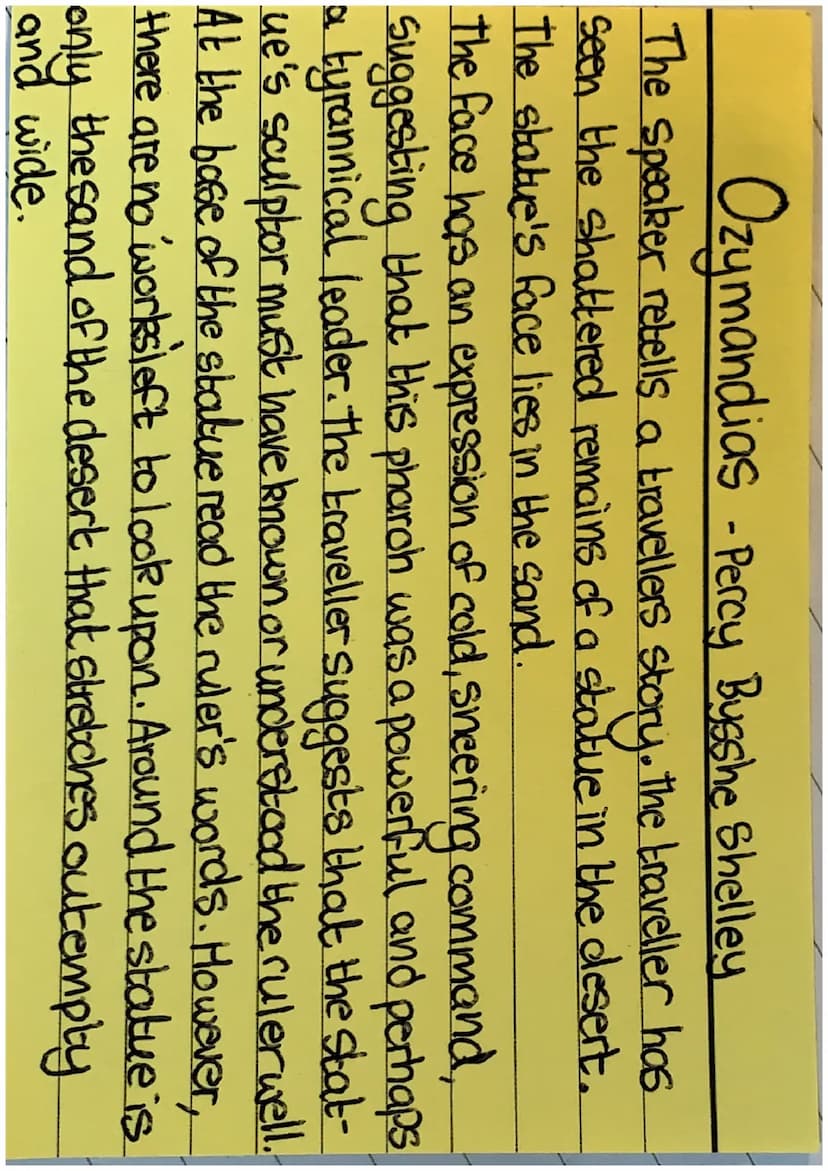 Ozymandias - Percy Bysshe Shelley
The speaker retells a travellers story. The traveller has
seen the shattered remains of a statue in the desert.
The statue's face lies in the sand.
The face has an expression of cold, sneering command,
suggesting that this pharoh was a powerful and perhaps
a tyrannical leader. The traveller suggests that the stat-
ue's sculptor must have known or understood the ruler well.
At the base of the statue read the ruler's words. However,
there are no 'works' left to look upon. Around the statue is
only the sand of the desert that stretches out empty
and wide.